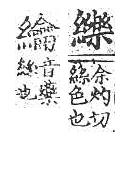 纅
余灼切
絲色也
音藥
絲也